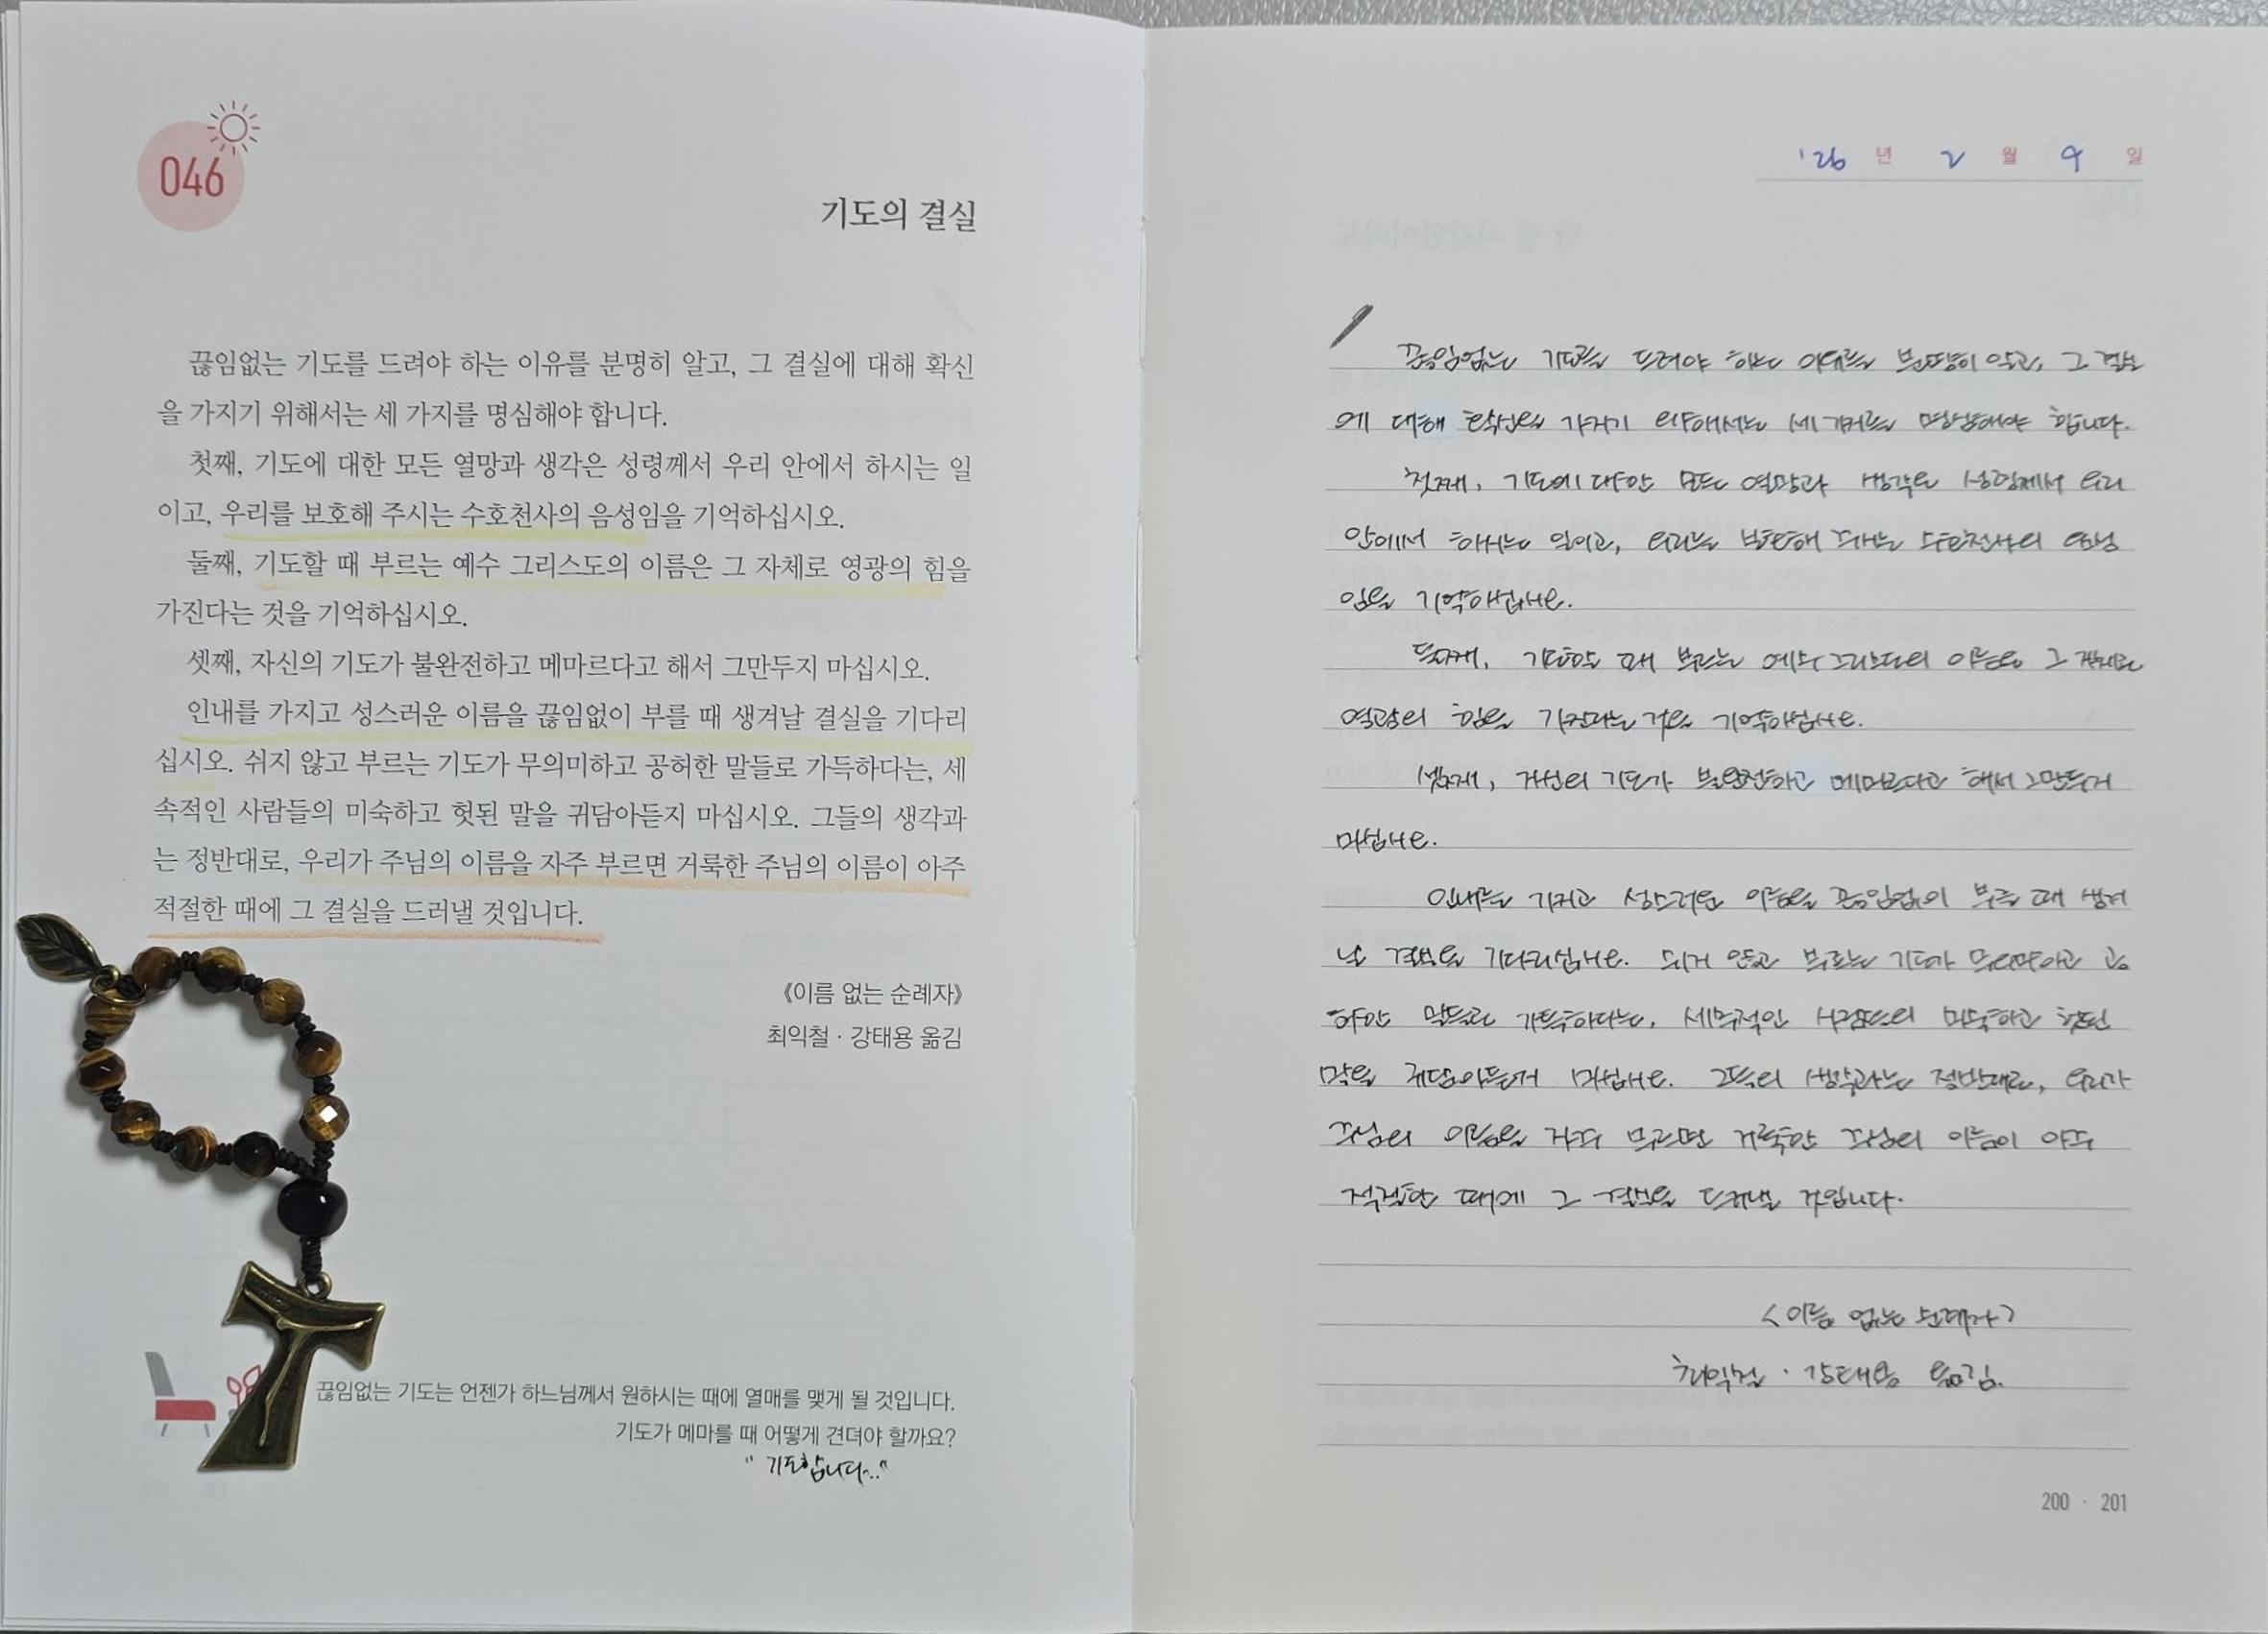 046
기도의 결실
끊임없는 기도를 드려야 하는 이유를 분명히 알고, 그 결실에 대해 확신
을 가지기 위해서는 세 가지를 명심해야 합니다.
첫째, 기도에 대한 모든 열망과 생각은 성령께서 우리 안에서 하시는 일
이고, 우리를 보호해 주시는 수호천사의 음성임을 기억하십시오.
둘째, 기도할 때 부르는 예수 그리스도의 이름은 그 자체로 영광의 힘을
가진다는 것을 기억하십시오.
셋째, 자신의 기도가 불완전하고 메마르다고 해서 그만두지 마십시오.
인내를 가지고 성스러운 이름을 끊임없이 부를 때 생겨날 결실을 기다리
십시오. 쉬지 않고 부르는 기도가 무의미하고 공허한 말들로 가득하다는, 세
속적인 사람들의 미숙하고 헛된 말을 귀담아듣지 마십시오. 그들의 생각과
는 정반대로, 우리가 주님의 이름을 자주 부르면 거룩한 주님의 이름이 아주
적절한 때에 그 결실을 드러낼 것입니다.
《이름 없는 순례자》
최익철 · 강태용 옮김
끊임없는 기도는 언젠가 하느님께서 원하시는 때에 열매를 맺게 될 것입니다.
기도가 메마를 때 어떻게 견뎌야 할까요?
" 기도합니다..."
'26 년 2 월 9 일
끊임없는 기도를 드려야 하는 이유를 분명히 알고, 그 결실
에 대해 확신을 가지기 위해서는 세 가지를 명심해야 합니다.
첫째, 기도에 대한 모든 열망과 생각은 성령께서 우리
안에서 하시는 일이고, 우리를 보호해 주시는 수호천사의 음성
임을 기억하십시오.
둘째, 기도할 때 부르는 예수 그리스도의 이름은 그 자체로
영광의 힘을 가진다는 것을 기억하십시오.
셋째, 자신의 기도가 불완전하고 메마르다고 해서 그만두지
마십시오.
인내를 가지고 성스러운 이름을 끊임없이 부를 때 생겨
날 결실을 기다리십시오. 쉬지 않고 부르는 기도가 무의미하고 공
허한 말들로 가득하다는, 세속적인 사람들의 미숙하고 헛된
말을 귀담아듣지 마십시오. 그들의 생각과는 정반대로, 우리가
주님의 이름을 자주 부르면 거룩한 주님의 이름이 아주
적절한 때에 그 결실을 드러낼 것입니다.
<이름 없는 순례자>
최익철 · 강태용 옮김.
200 · 201